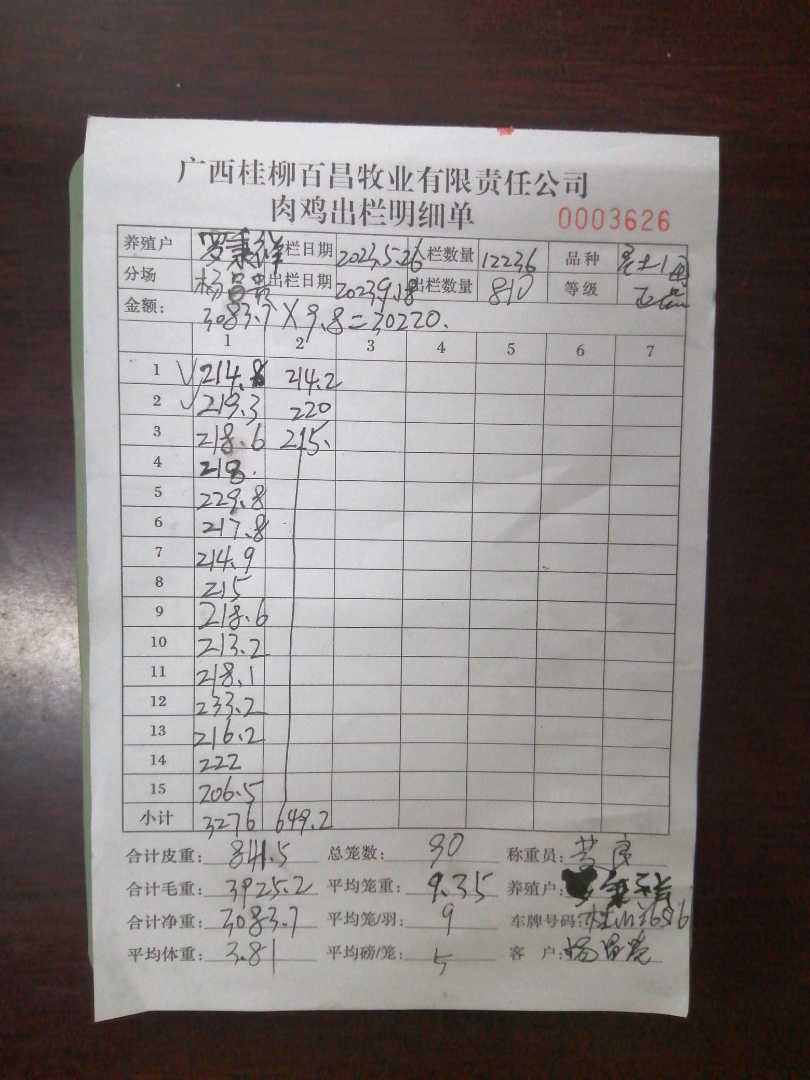 广西桂柳百昌牧业有限责任公司
肉鸡出栏明细单 0003626
养殖户 罗 祥 栏日期 2023.5.26 栏数量 12236 品种 土1
分场 杨昌贵 出栏日期 2023.9.18 出栏数量 810 等级 正常
金额: 3083.7×9.8=30220.
1 2 3 4 5 6 7
1 214.8 214.2
2 219.3 220
3 218.6 215.
4 218.
5 229.8
6 217.8
7 214.9
8 215
9 218.6
10 213.2
11 218.1
12 233.2
13 216.2
14 222
15 206.5
小计 3276 649.2
合计皮重: 841.5 总笼数: 90 称重员: 黄
合计毛重: 3925.2 平均笼重: 9.35 养殖户:
合计净重: 3083.7 平均笼/羽: 9 车牌号码: 桂
平均体重: 3.81 平均磅/笼: 5 客 户: 杨昌贵